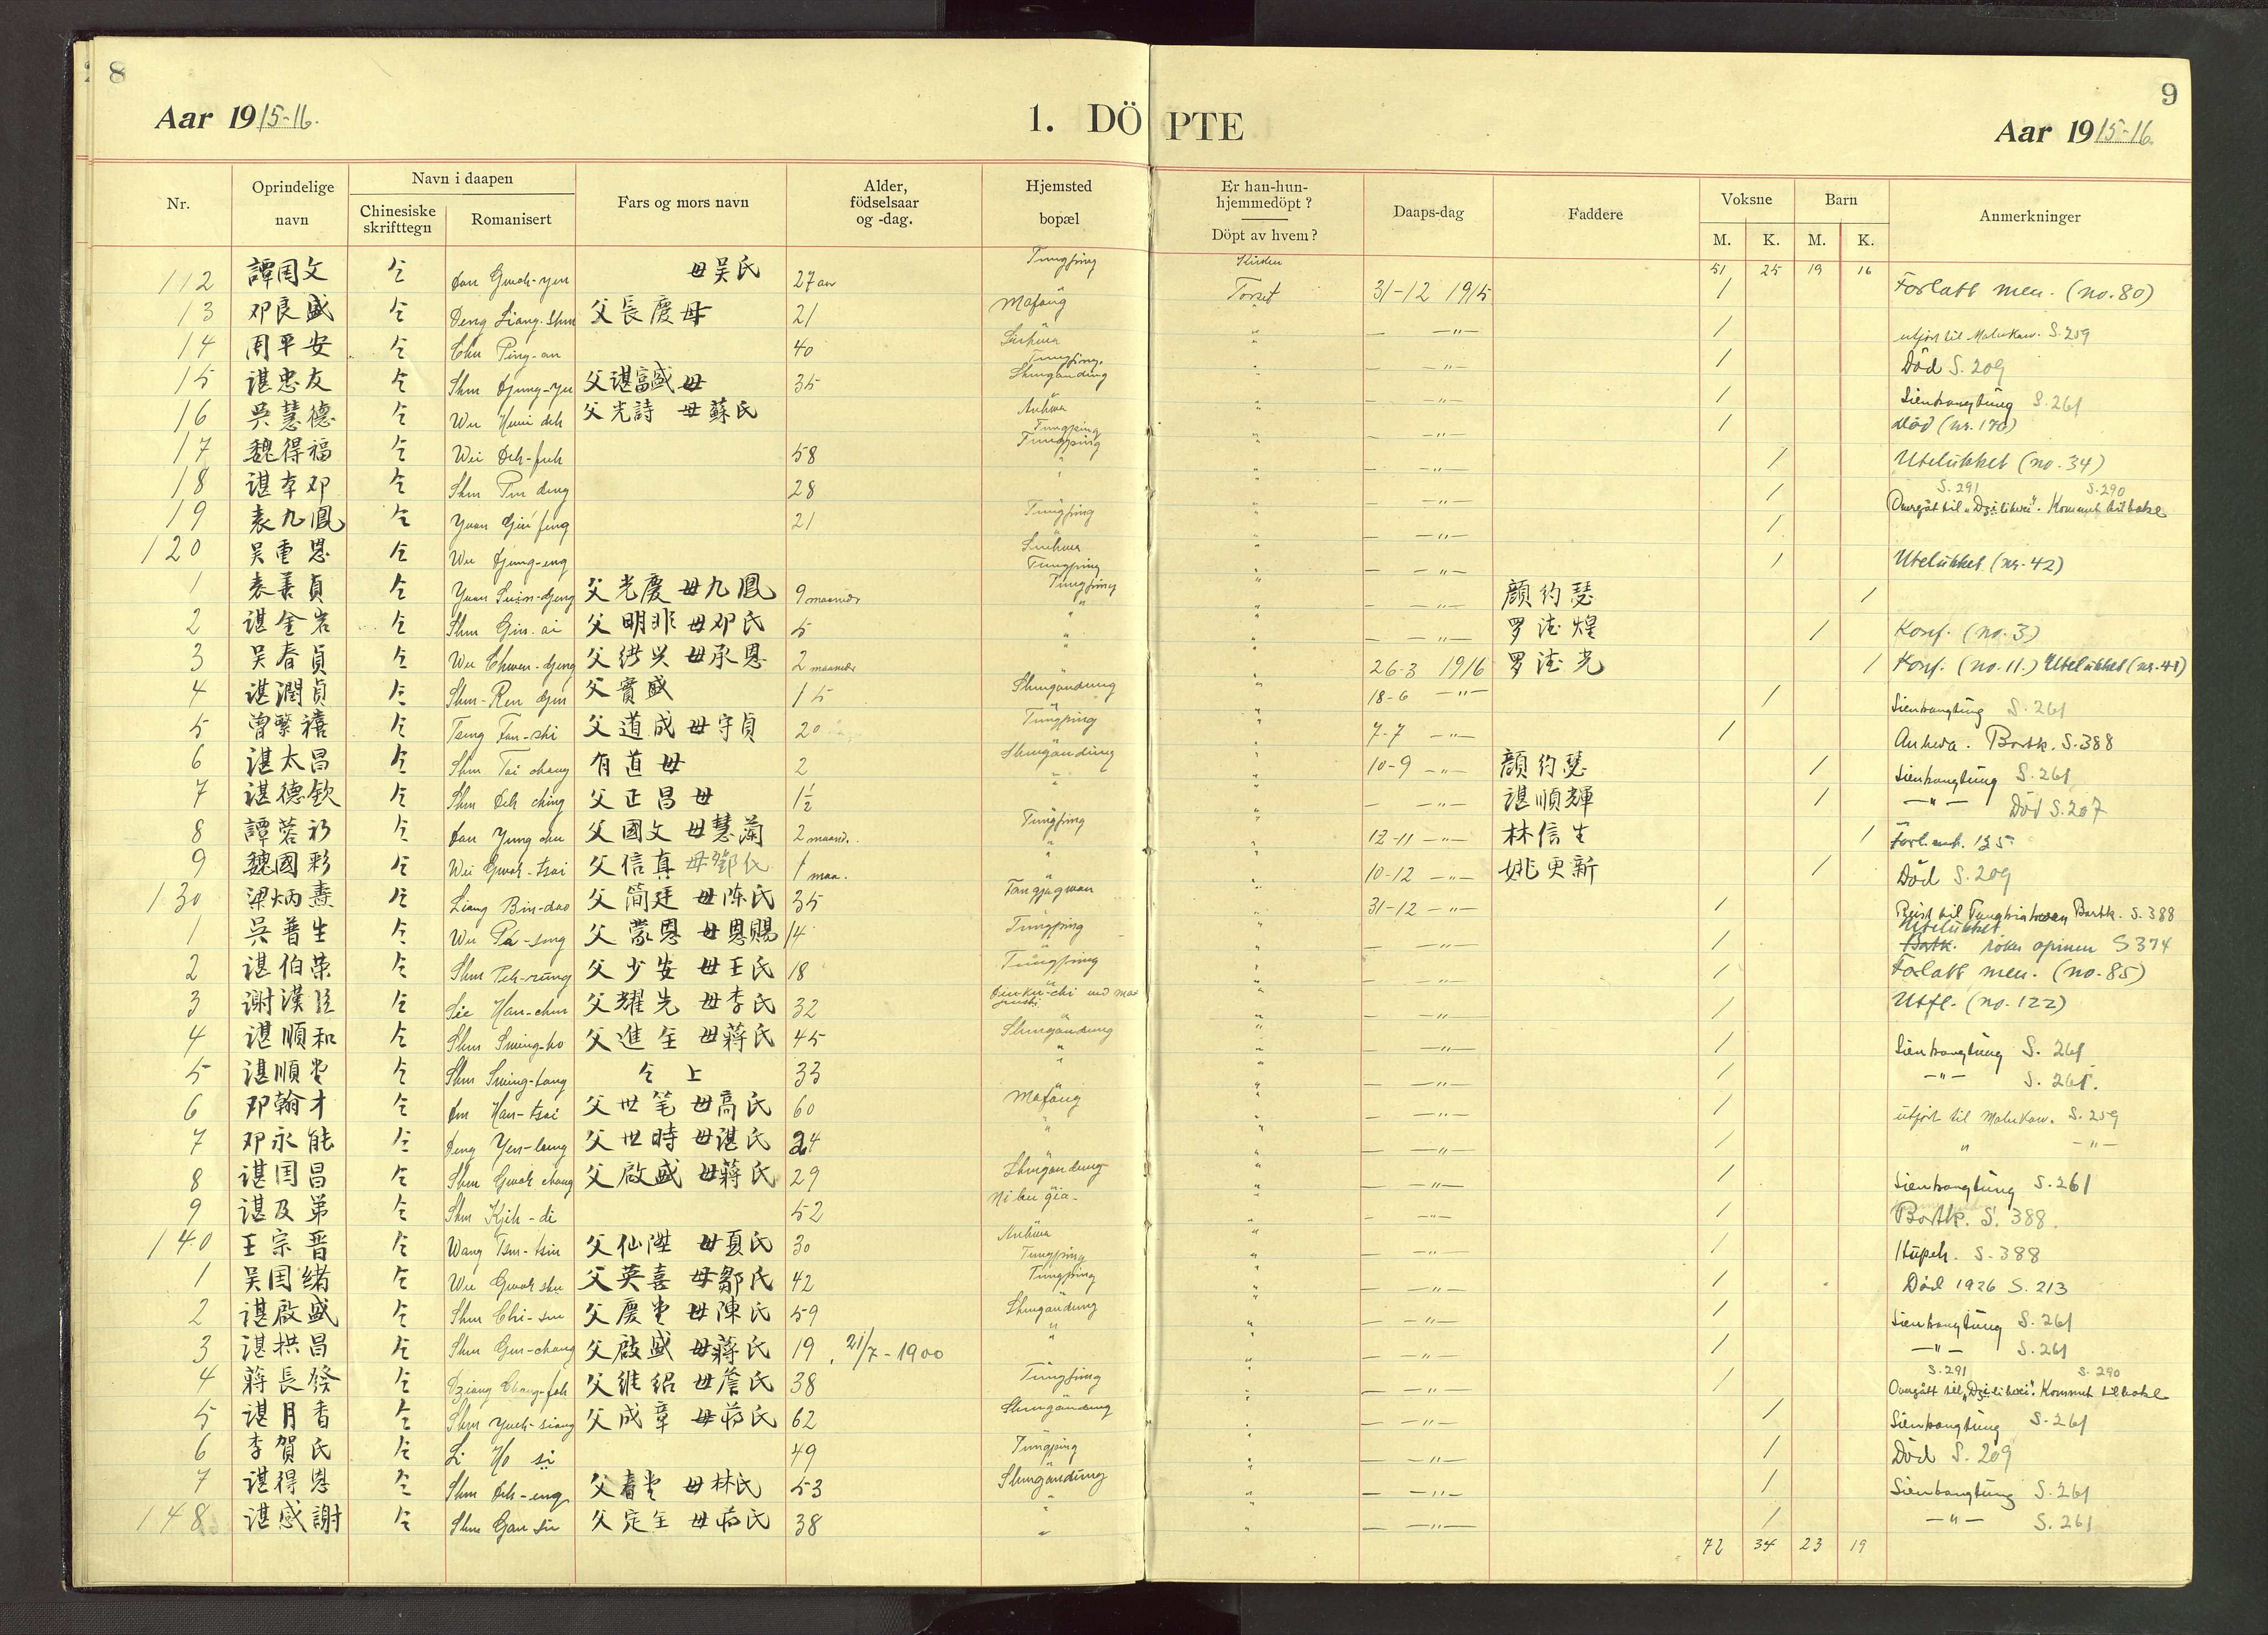 8
9
Aar 1915-16.
1. DÖPTE
Aar 1915-16.
Nr. Oprindelige navn Navn i daapen Chinesiske skrifttegn Romanisert Fars og mors navn Alder, födselsaar og -dag. Hjemsted bopæl Er han-hun-hjemmedöpt? Döpt av hvem? Daaps-dag Faddere Voksne M. K. Barn M. K. Anmerkninger
51 25 19 16
112 譚国文 仝 母吴氏 27 aar Tungping Torset 31-12 1915 / Forlatt men. (no. 80)
13 邓良盛 仝 Deng Liang-shen 父長慶母 21 Mafang " — —"— / utfört til Mahukaw. S. 259
14 周平安 仝 Chu Ping-an 40 " — —"— / Död S. 209
15 谌忠友 仝 父谌富盛母 35 Tungping. Shengandung " — —"— / Sienkangtung S. 261
16 吳慧德 仝 父光詩 母蘇氏 Anhwa Tungping " — —"— / död (nr. 170)
17 魏得福 仝 Wei Deh-fuh 58 Tungping " — —"— / Utelukket (no. 34)
18 谌李邓 仝 28 " " — —"— / S. 291 S. 290 Overgåt til "Dzilihwei". Kommet tilbake
19 袁九鳳 仝 Yuan Giu feng 21 Tungping " — —"— /
120 吴重恩 仝 Wu Djung-eng Tungping " — —"— / Utelukket (nr. 42)
1 袁善貞 仝 父光慶 母九鳳 9 maaneder Tungping " — —"— 顔約瑟 /
2 谌金岩 仝 父明非 母邓氏 5 " " — —"— 罗 煌 / Konf. (no. 3)
3 吴春貞 仝 Wu Chwen-djeng 父洪兴 母承恩 2 maaneder " " 26-3 1916 罗 光 / Konf. (no. 11.) Utelukket (nr. 41)
4 谌潤貞 仝 父寶盛 15 Shengandung " 18-6 —"— / Sienkangtung S. 261
5 曾繁禧 仝 Tseng Fan-shi 父道成 母守貞 20 Tungping " 7-7 —"— / Anhwa. Bortk. S. 388
6 谌太昌 仝 Shen Tai chang 有道 母 2 Shengandung " 10-9 —"— 顔約瑟 / Sienkangtung S. 261
7 谌德欽 仝 Shen Deh ching 父正昌母 1½ " " — —"— 谌順輝 / —"— Död S. 207
8 譚蓉初 仝 父國文 母慧蘭 2 maand. Tungping " 12-11 —"— 林信生 / Forl. 135
9 魏國彩 仝 Wei Gwoh-tsai 父信真 母鄧氏 1 maa. " " 10-12 —"— 姚更新 / Död S. 209
130 梁炳燾 仝 Liang Bin-dao 父簡廷 母陈氏 35 " 31-12 —"— / Reist til Bortk. S. 388
1 吳普生 仝 父蒙恩 母恩賜 14 Tungping " — —"— / Utelukket röker opium S 374
2 谌伯榮 仝 父少安 母王氏 18 Tungping " — —"— / Forlatt men. (no. 85)
3 谢漢臣 仝 Sie Han-chen 父耀先 母李氏 32 " — —"— / Utfl. (no. 122)
4 谌順和 仝 父進全 母蔣氏 45 Shengandung " —"— / Sienkangtung S. 261
5 谌順堂 仝 仝上 33 " " — —"— / —"— S. 261.
6 邓翰才 仝 父世笔 母高氏 60 Mafang " — —"— / utfört til Mahukaw. S. 259
7 邓永能 仝 父世時 母谌氏 24 " " — —"— / " —"—
8 谌国昌 仝 Shen Gwoh chang 父啟盛 母蔣氏 29 Shengandung " — —"— / Sienkangtung S. 261
9 谌及弟 仝 52 " — —"— / Bortk. S. 388.
140 王宗晋 仝 父仙陛 母夏氏 30 Anhwa Tungping " — —"— / Hupeh. S. 388
1 吴国緒 仝 父英喜 母鄒氏 42 Tungping " — —"— / Död 1926 S. 213
2 谌啟盛 仝 父慶堂 母陳氏 59 Shengandung " — —"— / Sienkangtung S. 261
3 谌拱昌 仝 父啟盛 母蔣氏 19. 21/7-1900 " " — —"— / —"— S. 261
4 蔣長發 仝 Dziang Chang-fah 父維紹 母詹氏 38 Tungping " — —"— / S. 291 S. 290 Overgått til "Dzilihwei". Kommet tilbake
5 谌月香 仝 Shen Yueh-siang 父成章 母蒋氏 62 Shengandung " — —"— / Sienkangtung S. 261
6 李賀氏 仝 Li Ho si 49 Tungping " — —"— / Död S. 209
7 谌得恩 仝 Shen Deh-eng 父春堂 母林氏 53 Shengandung " — —"— / Sienkangtung S. 261
148 谌感謝 仝 父定全 母蒋氏 38 " " — —"— / —"— S. 261
72 34 23 19